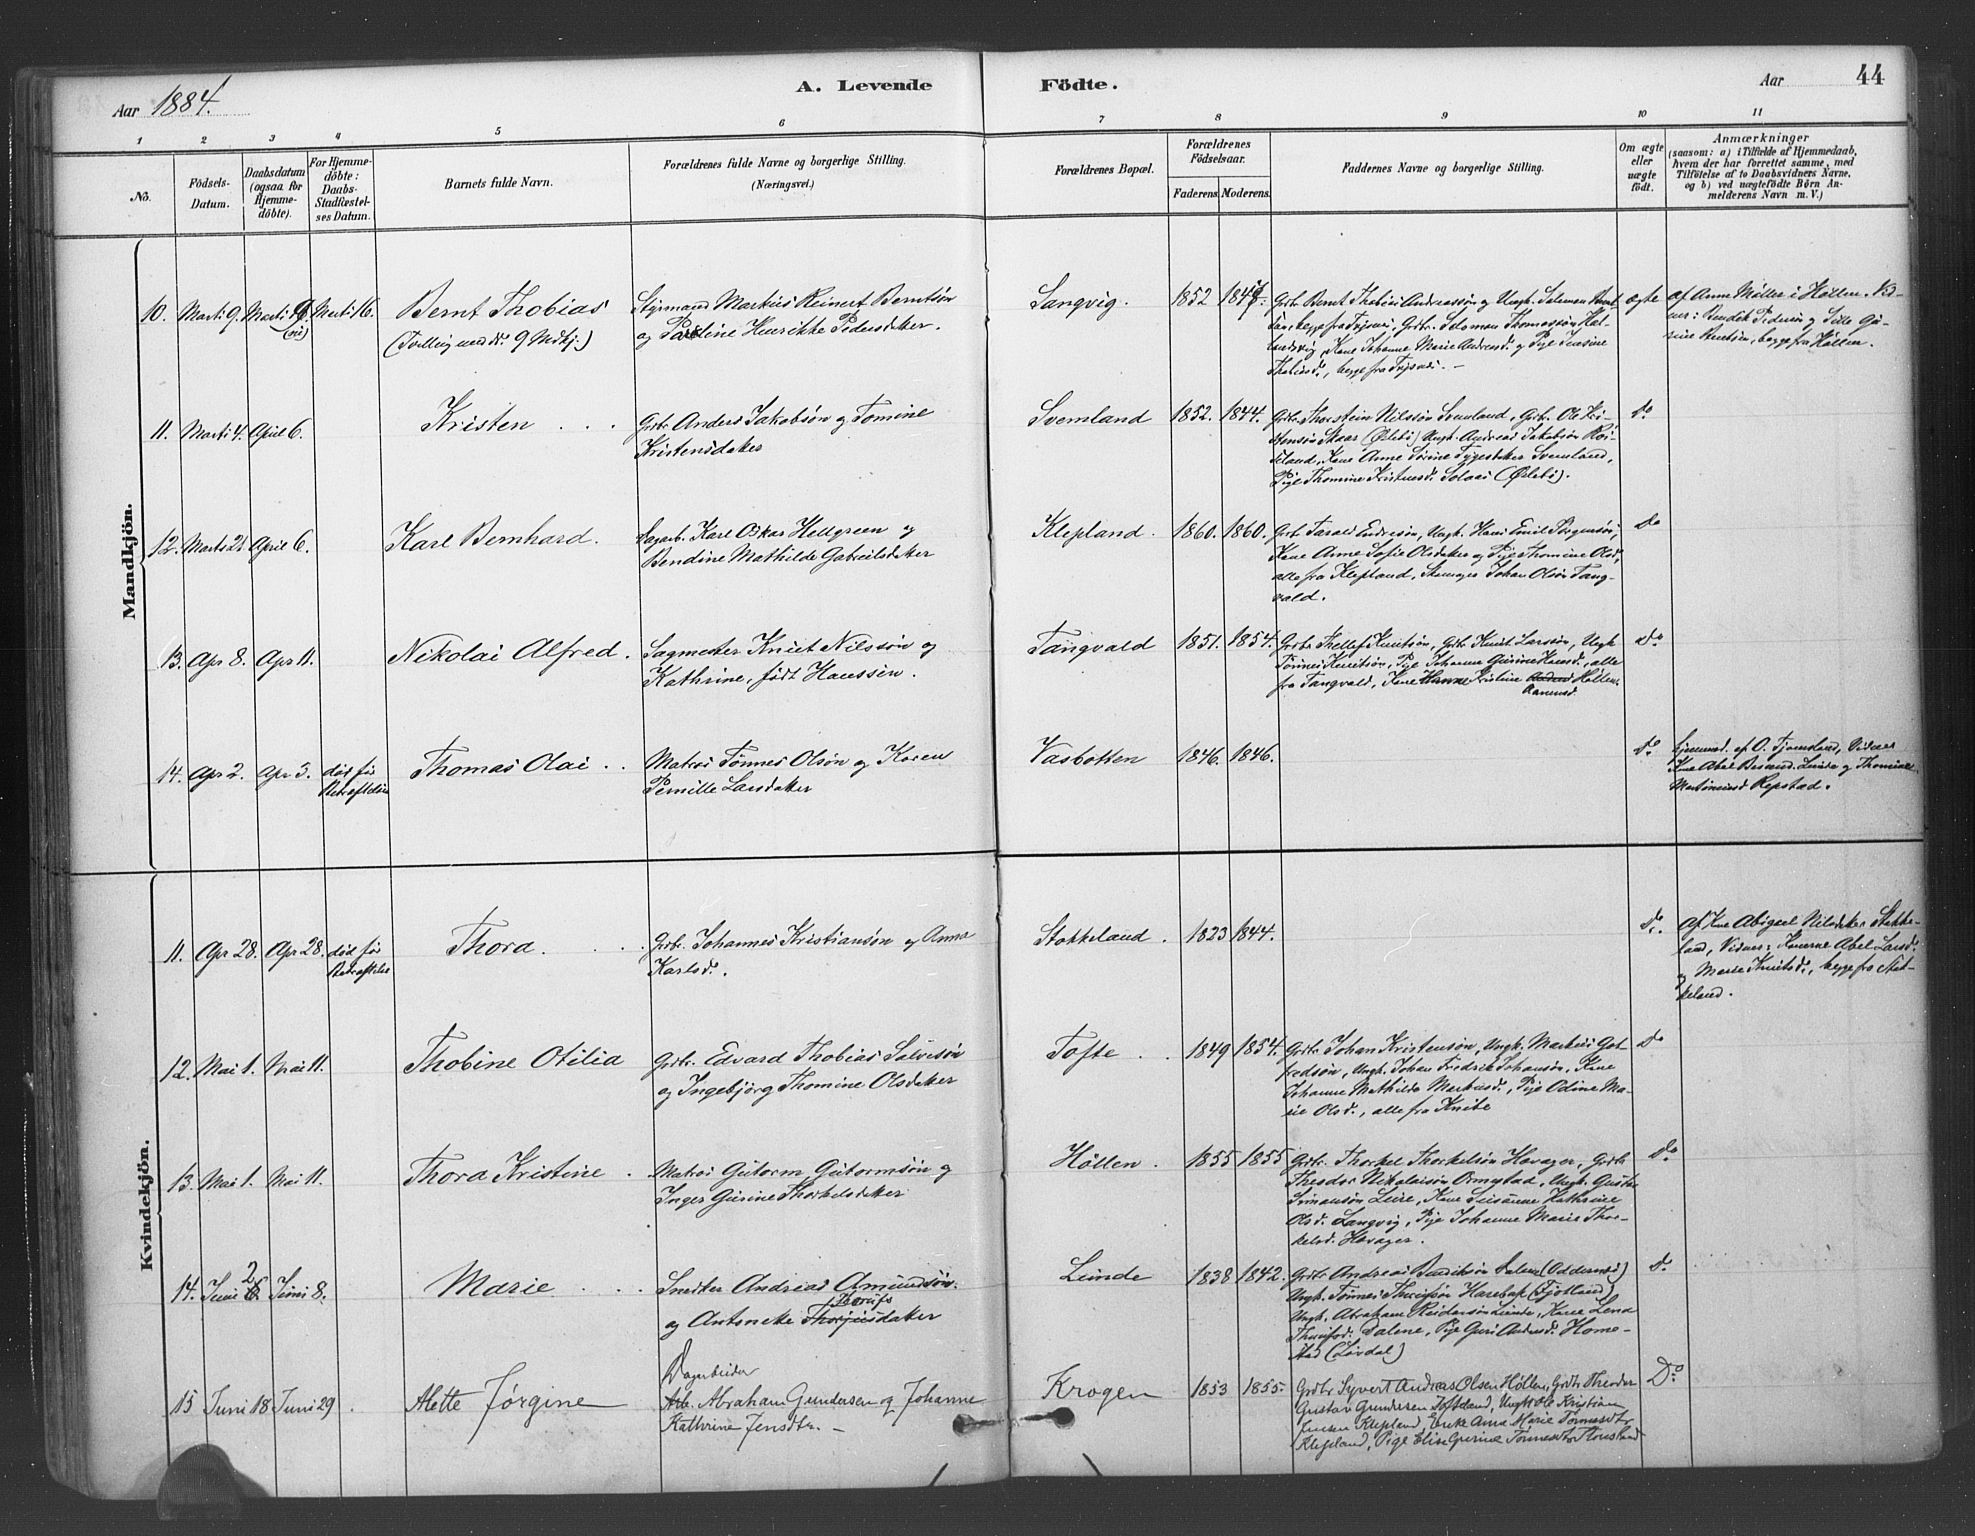 Aar 1884.
A. Levende Födte.
Aar 44
1 2 3 4 5 6 7 8 9 10 11
No.
Födsels-
Datum.
Daabsdatum
(ogsaa for
Hjemme-
döbte).
For Hjemme-
döbte:
Daabs-
Stadfæstel-
ses Datum.
Barnets fulde Navn.
Forældrenes fulde Navne og borgerlige Stilling.
(Næringsvei.)
Forældrenes Bopæl.
Forældrenes
Födselsaar.
Faderens. Moderens.
Faddernes Navne og borgerlige Stilling.
Om ægte
eller
uægte
födt.
Anmærkninger
(saasom: a) i Tilfælde af Hjemmedaab,
hvem der har forrettet samme, med
Tilföielse af to Daabsvidners Navne,
og b) ved uægtefödte Börn An-
melderens Navn m. V.)
Mandkjön.
10. Marti 9. Marti 9 Marti 16. Bernt Thobias
(Tvilling med 9 Mdkj:)
Styrmand Martius Reinert Berntsøn
og Pauline Henrikke Pedersdatter.
Langvig. 1852 1847.
Grdb. Bernt Thobias Andreassøn og Ungk. Salomon
begge fra Trysnes, Grdbr. Solomon Thomassøn Hal-
landsvig, Kone Johanne Marie Andersd. og Pige
Thobiasd., begge fra Trysnes. —
ægte
af Anne Møller i Høllen. Vid-
ner: Bendik Pedersen og Sille Gu-
rine Berntsøn, begge fra Høllen.
11. Marti 4. April 6. Kristen . . .
Grdbr. Anders Jakobsøn og Tomine
Kristensdatter
Svemland 1852. 1844.
Grdbr. Thorstein Nilssøn Svemland, Grdbr. Ole Kri-
stensøn Skaar (Øslebø) Ungk. Andreas Jakobsøn Roi-
seland, Kone Anne Sørine Tygesdatter Svemland,
Pige Thomine Kristensd. Solaas (Øslebø).
Do
12. Marts 21 April 6. Karl Bernhard.
Dagarb. Karl Oskar Hellgreen og
Bendine Mathilde Gabrielsdatter
Klepland. 1860. 1860.
Grdb Tarald Endresøn, Ungk. Hans Emil Jørgensøn,
Kone Anne Sofie Olsdatter og Pige Thomine Olsd.
alle fra Klepland, Skomager Johan Olsøn Tang-
vald.
Do
13. Apr 8. Apr 11. Nikolai Alfred.
Sagmester Knut Nilssøn og
Kathrine, født Hanssen.
Tangvald 1851. 1854.
Grdbr Thellef Knutsøn, Grdb Knut Larssøn, Ungk
Tønnes Knutsøn, Pige Johanne Gurine Hansd., alle
fra Tangvald, Kone Hanne Kristine Høllen.
Do
14. Apr 2. Apr 3. død før
Bekræftelsen
Thomas Olai . .
Matros Tønnes Olsøn og Karen
Pernille Larsdatter
Vasbotten 1846. 1846.
Do
hjemmed. af O. Tjomsland, Vidner
Kone Abel Lunde og
Repstad.
Kvindekjön.
11. Apr 28. Apr 28. død før
Bekræftelse
Thora. . .
Grdbr. Johannes Kristiansøn og Anna
Karlsd.
Stokkeland. 1823 1844.
Do
Af Kone Abigael Nilsdatter Stokke-
land, Vidner: Konerne Abel Larsd.
og Marie Knutsd., begge fra Stok-
keland.
12. Mai 1. Mai 11. Thobine Otilia
Grdbr. Edvard Thobias Salvesøn
og Ingebjørg Thomine Olsdatter
Tofte . . 1849 1854.
Grdbr Johan Kristensøn, Ungk. Markus Got-
fredsøn, Ungk. Johan Fredrik Johansøn, Kone
Johanne Mathilde Markusd., Pige Odine Ma-
rie Olsd., alle fra Knibe
Do
13. Mai 1. Mai 11. Thora Kristine .
Matros Gutorm Gutormsøn og
Inger Gurine Thorkelsdatter
Høllen . 1855 1855
Grdbr. Thorkel Thorkelsøn Havager, Grdbr.
Theodor Nikolaisøn Ormestad, Ungk. Gustav
Simonsøn Leire, Kone Susanne Kathrine
Olsd. Langvig, Pige Johanne Marie Thor-
kelsd. Havager.
Do
14. Juni 2 Juni 8. Marie . . .
Smedter Andreas Amundsøn.
og Antonette Thorufsdatter
Lunde 1838 1842.
Grdbr Andreas Salem (Oddernes)
Ungk. Tønnes (Fjotland)
Ungk. Abraham Reidersøn Lunde, Kone Lena
Dalene, Pige Guri Andersd. Home-
stad (Løvdal)
Do
15 Juni 18 Juni 29 . Alette Jørgine
Dagarbeider
Arb. Abraham Gundersen og Johanne
Kathrine Jensdtr. —
Krogen 1853 1855.
Grdbr Syvert Andreas Olsen Høllen, Grdbr Theodor
Gustav Gundersen Toftland, Ungk Ole Kristian
Jensen Klepland, Enke Anna Marie Tønnesdtr
Klepland, Pige Elise Gurine Tønnesdtr
Do